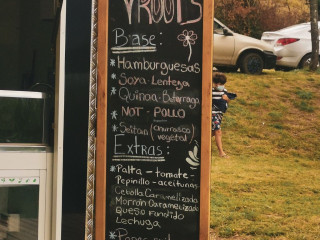 VROOTS
Base:
* Hamburguesas
* Soya - Lenteja
* Quinoa - Betarraga
* NOT - POLLO
* Seitan (churrasco vegetal)
Extras:
* Palta - tomate -
Pepinillo - aceitunas
Cebolla Caramelizada
Morrón Caramelizado
Queso fundido
Lechuga